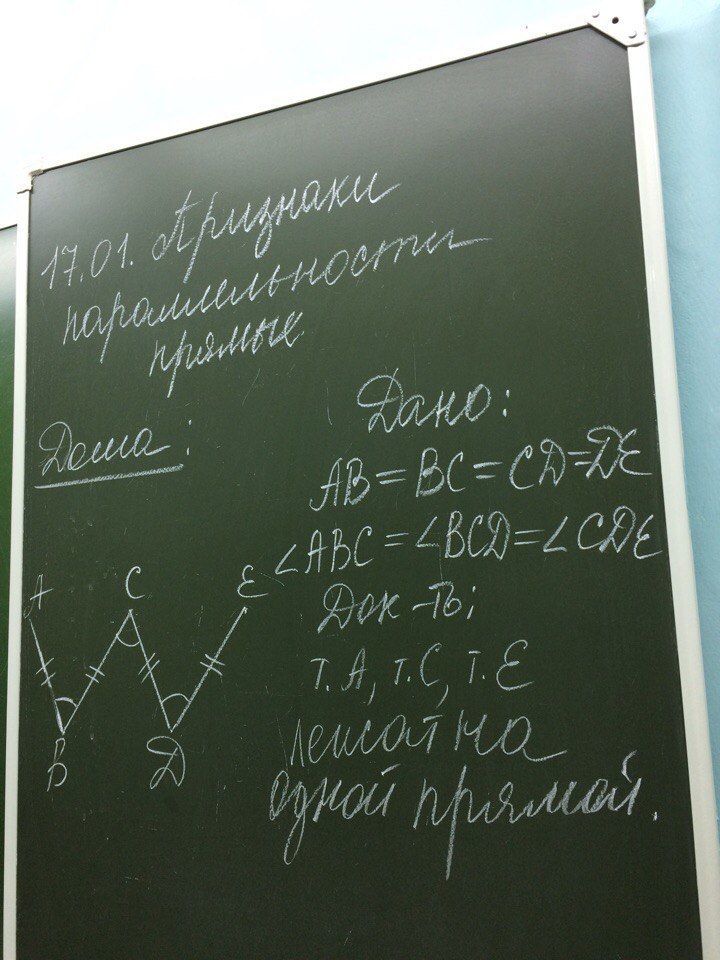 17.01. Признаки
параллельности
прямых
Дома:
Дано:
AB = BC = CD = DE
∠ABC = ∠BCD = ∠CDE
Док-ть:
т. A, т. C, т. E
лежат на
одной прямой.
A C E
B D